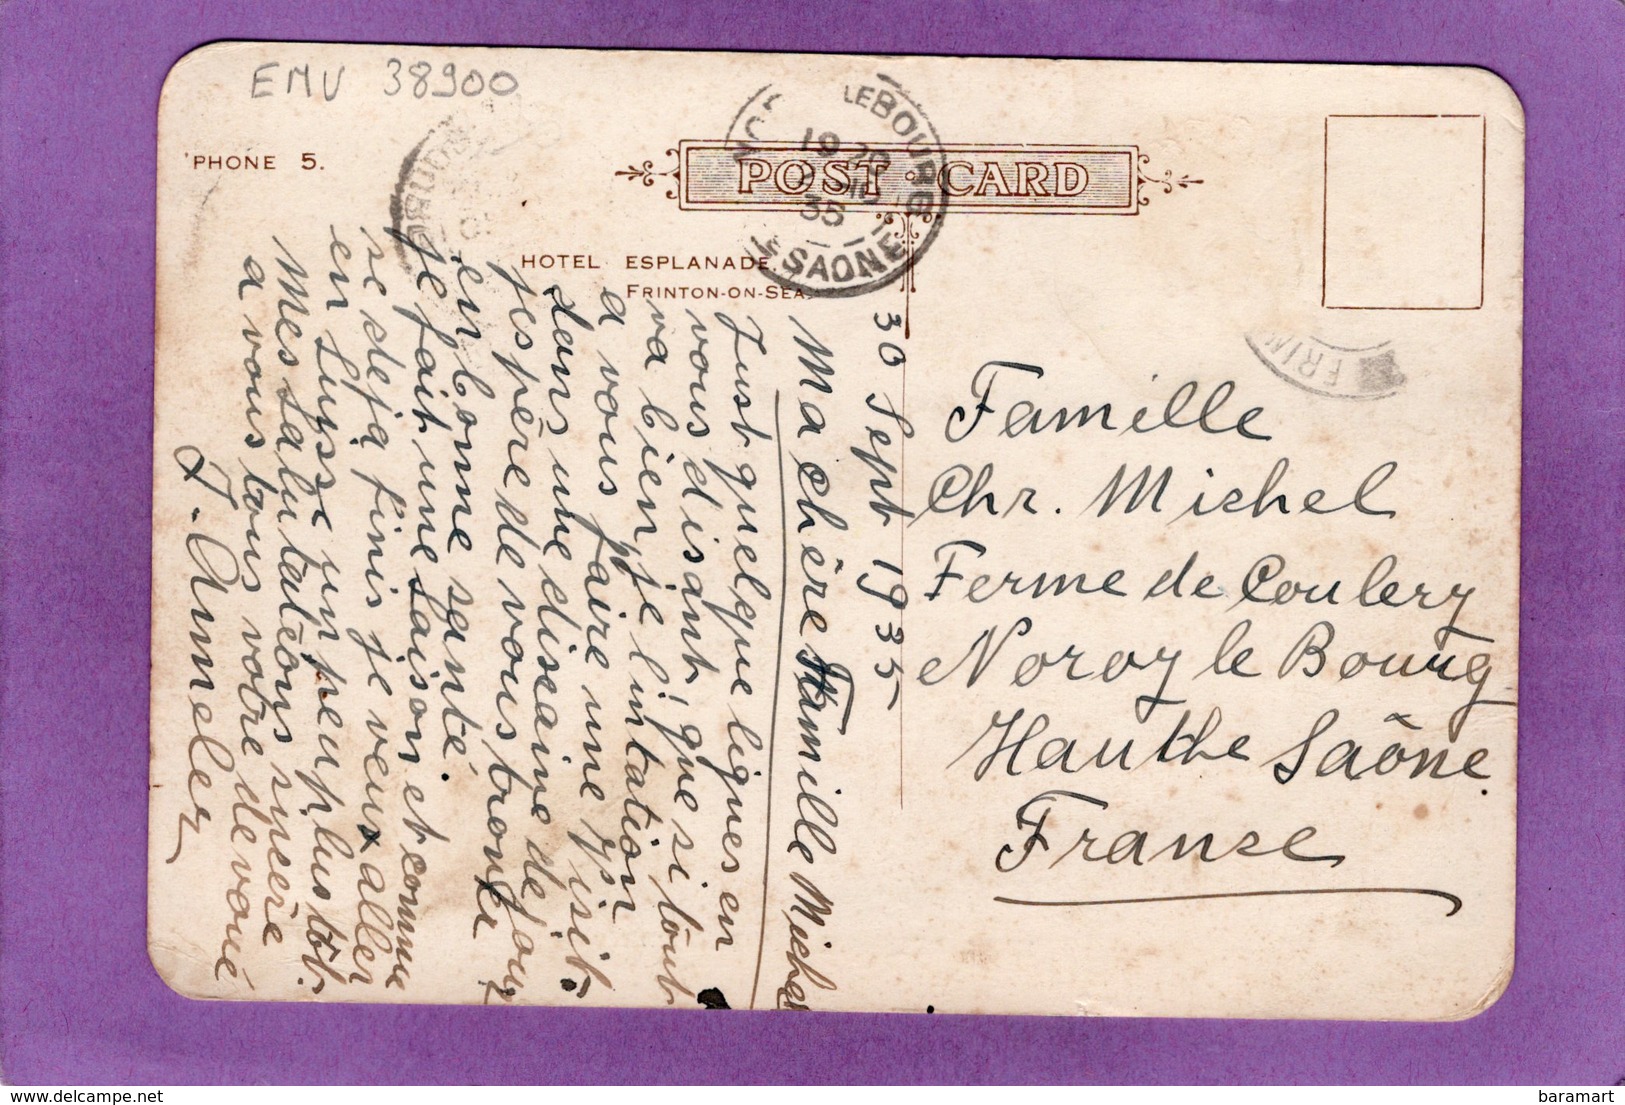 EMV 38900
PHONE 5.
POST CARD
HOTEL ESPLANADE,
FRINTON-ON-SEA.
LEBOURG
19 20
35
Hte SAONE
FRIN
30 Sept 1935
Ma chère Famille Michel
Just quelque lignes en
vous disant, que si tout
va bien je l'intation
a vous faire une visit.
dans une diseaine de jour
j'espère de vous trouver
en bonne santé.
je fait une saison et comme
se deja finis je veux aller
en Suisse un peu plus tôt.
Mes Salutations sincère
a vous tous votre devoué
J. Anneler
Famille
Chr. Michel
Ferme de Coulery
Noroy le Bourg
Hauthe Saône.
Franse
baramart
delcampe.net